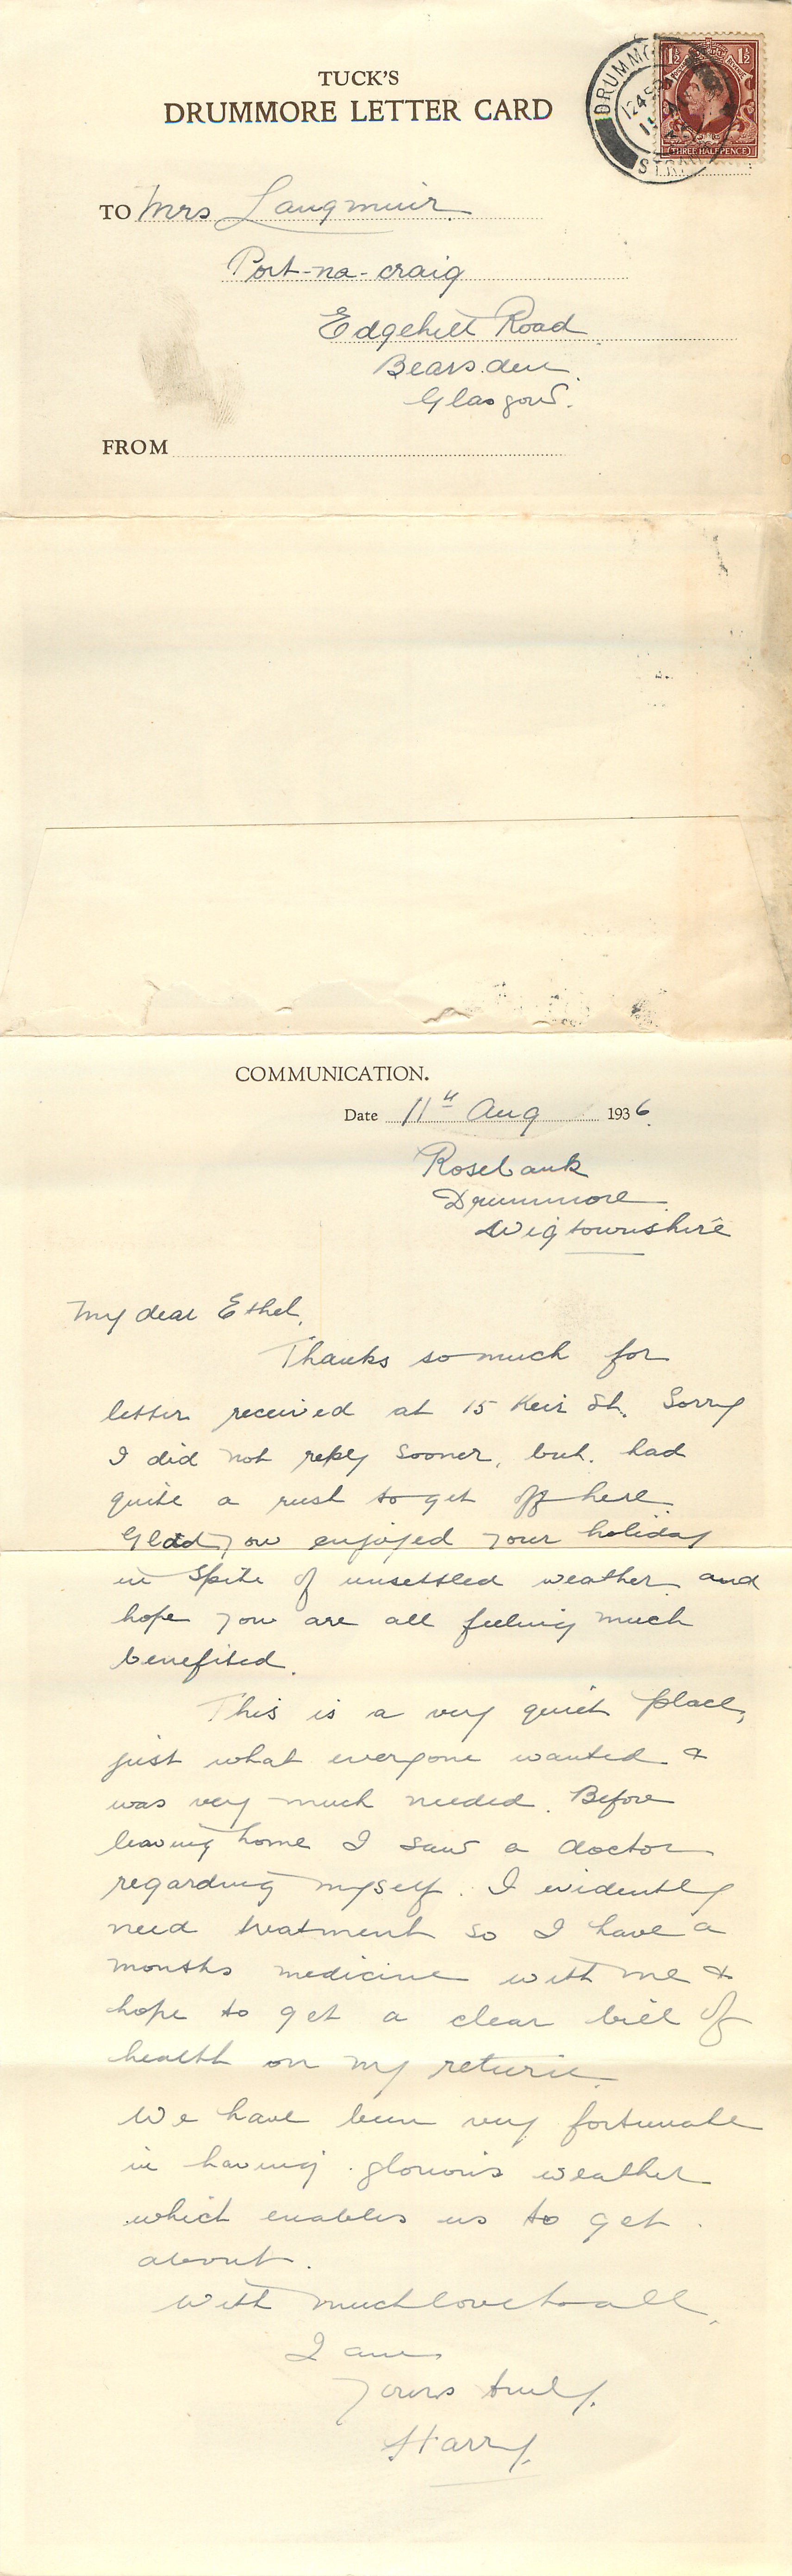 TUCK'S
DRUMMORE LETTER CARD
DRUMMO
12 45
STR
1½ 1½
(THREE HALFPENCE)
TO Mrs Langmuir
Port-na-craig
Edgehill Road
Bearsden
Glasgow.
FROM
COMMUNICATION.
Date 11th Aug 1936
Rosebank
Drummore
Wigtownshire
My dear Ethel,
Thanks so much for
letter received at 15 Keir St. Sorry
I did not reply sooner, but had
quite a rush to get off here.
Glad you enjoyed your holiday
in spite of unsettled weather and
hope you are all feeling much
benefited.
This is a very quiet place,
just what everyone wanted &
was very much needed. Before
leaving home I saw a doctor
regarding myself. I evidently
need treatment so I have a
months medicine with me &
hope to get a clear bill of
health on my return.
We have been very fortunate
in having glorious weather
which enables us to get
about.
With much love to all,
I am
Yours truly,
Harry.